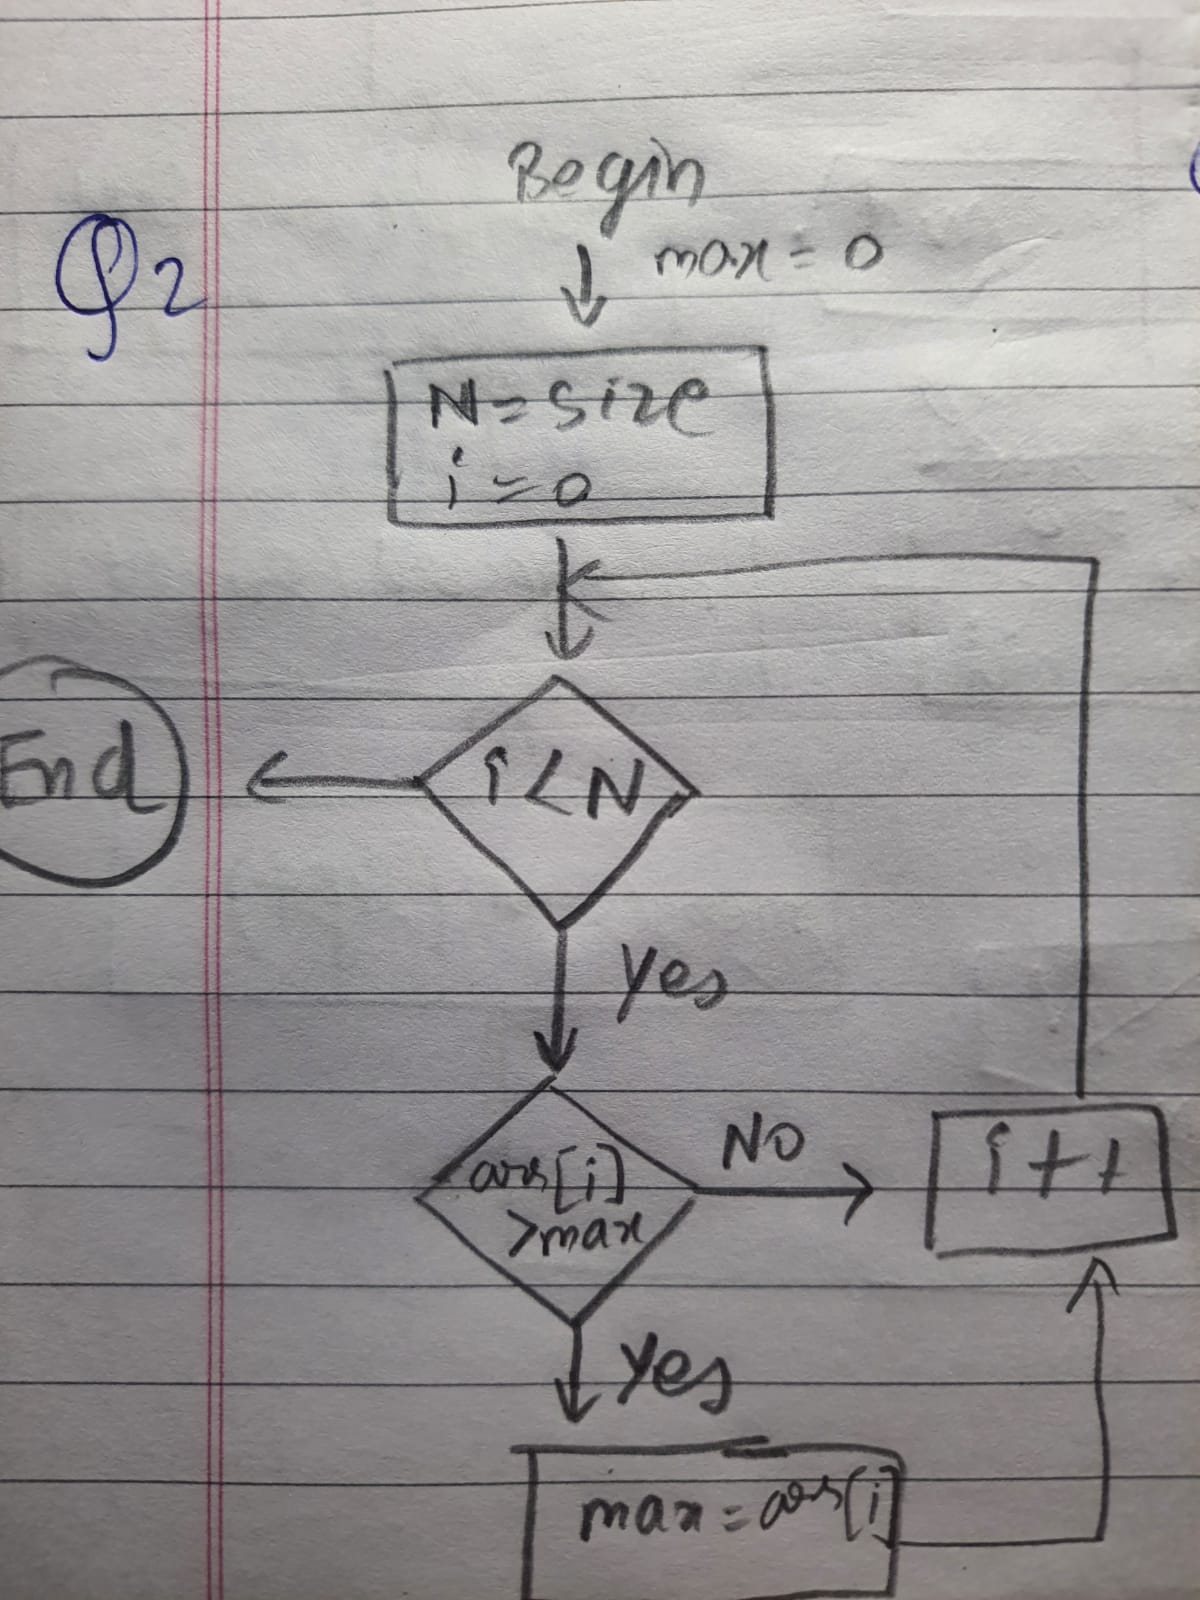 Begin
Q2
max = 0
N = size
i = 0
i < N
End
Yes
arr[i]
> max
NO
i++
Yes
max = arr[i]